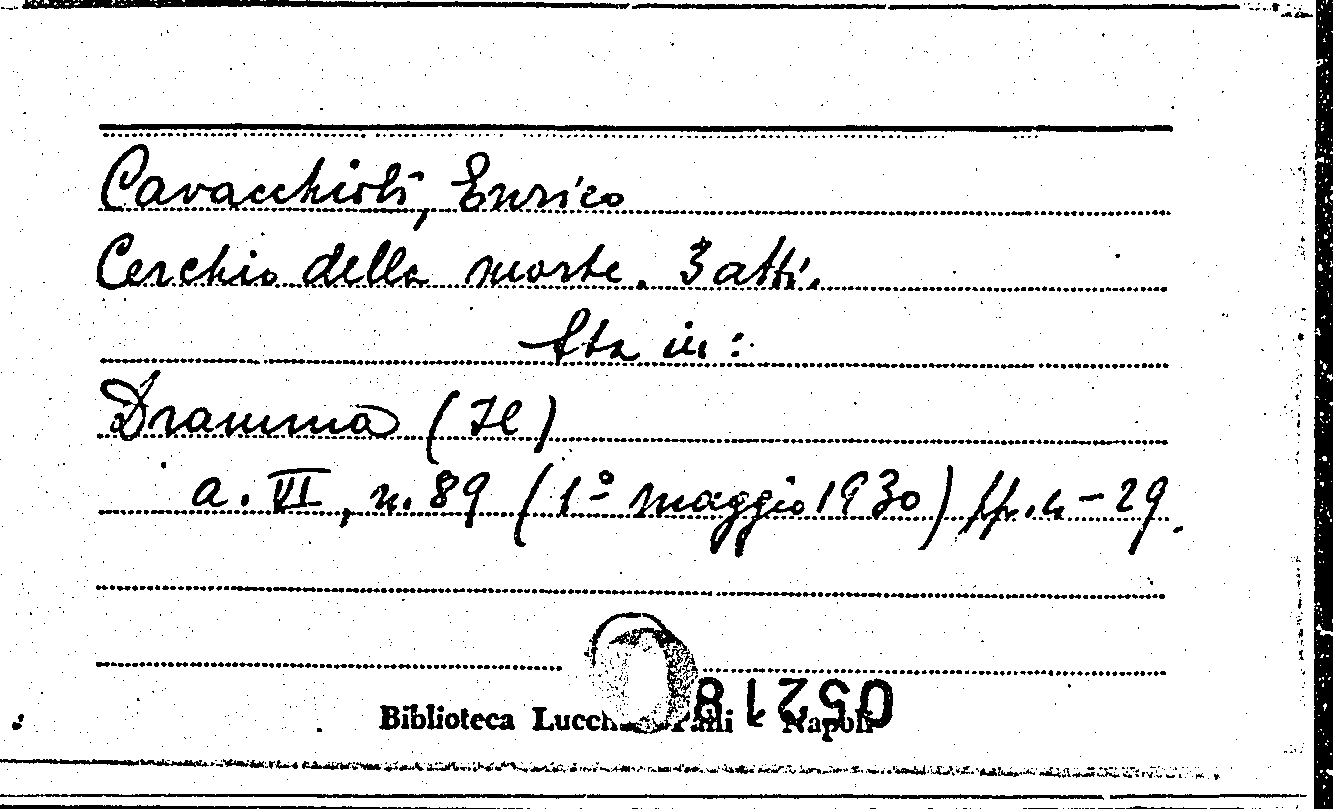 Cavacchioli, Enrico
Cerchio della morte. 3 atti.
Sta in:
Dramma (Il)
a. VI, n. 89 (1º maggio 1930) pp. 4-29.
05218
Biblioteca - Napoli